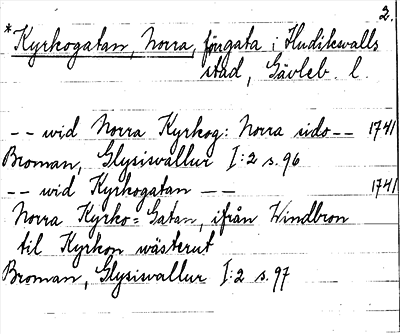 2.
*Kyrkogatan, Norra, förgata i Hudiksvalls
stad, Gävleb. l.
-- wid Norra Kyrkog: Norra sido -- 1741
Broman, Glysisvallur I:2 s. 96
-- wid Kyrkogatan -- 1741
Norra Kyrko=Gatan, ifrån Windbron
til Kyrkon wästerut
Broman, Glysisvallur I:2 s. 97